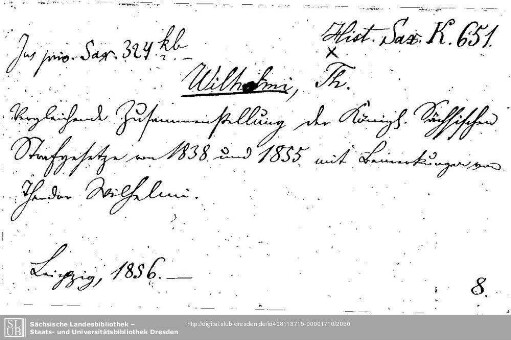 Hist. Sax. K. 651.
Jus priv. Sax. 324 kb
×
Wilhelmi, Th.
Vergleichende Zusammenstellung der Königl. Sächsischen
Strafgesetze von 1838 und 1855 mit Bemerkungen von
Theodor Wilhelmi.
Leipzig, 1856.
8.
Sächsische Landesbibliothek –
Staats- und Universitätsbibliothek Dresden